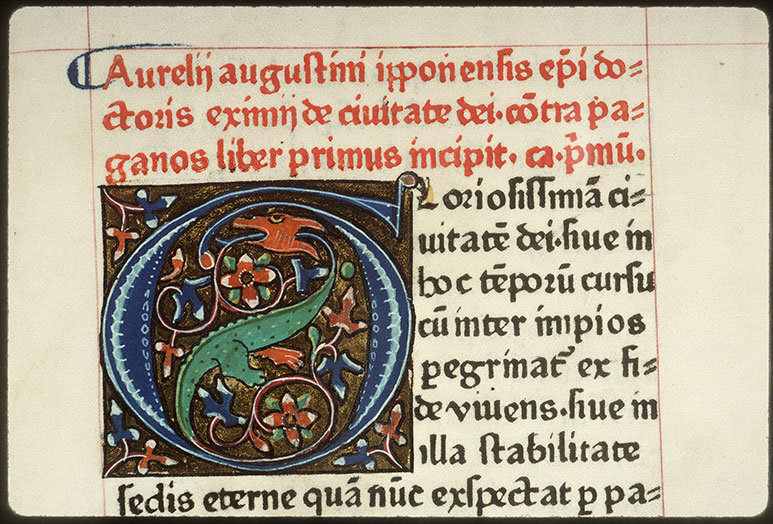 Aurelij augustini ipponensis ep̄i do=
ctoris eximij de ciuitate dei. cōtra pa=
ganos liber primus incipit. ca. p̄mū.
Gloriosissimā ci=
uitatē dei. siue in
hoc tēporū cursu
cū inter impios
ꝑegrinat᷑ ex fi=
de viuens. siue in
illa stabilitate
sedis eterne quā nūc exspectat ꝑ pa=